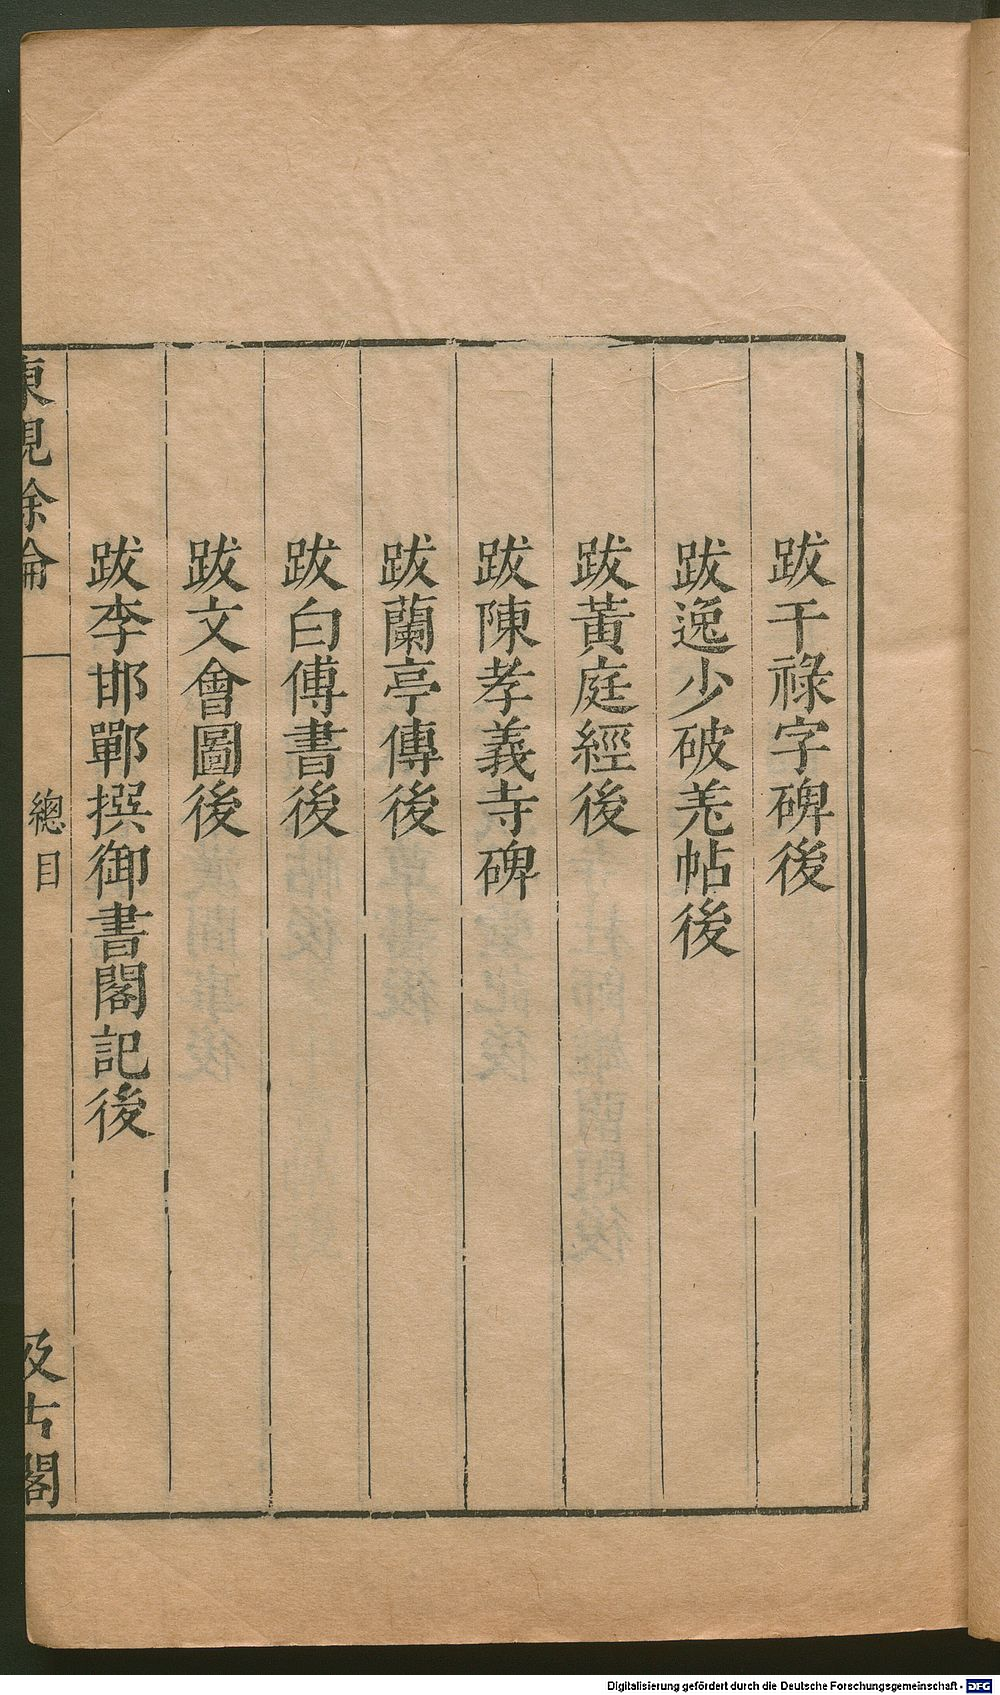 跋干祿字碑後
跋逸少破羌帖後
跋黃庭經後
跋陳孝義寺碑
跋蘭亭傳後
跋白傅書後
跋文會圖後
跋李邯鄲撰御書閣記後
東觀餘論
總目
汲古閣
Digitalisierung gefördert durch die Deutsche Forschungsgemeinschaft - DFG